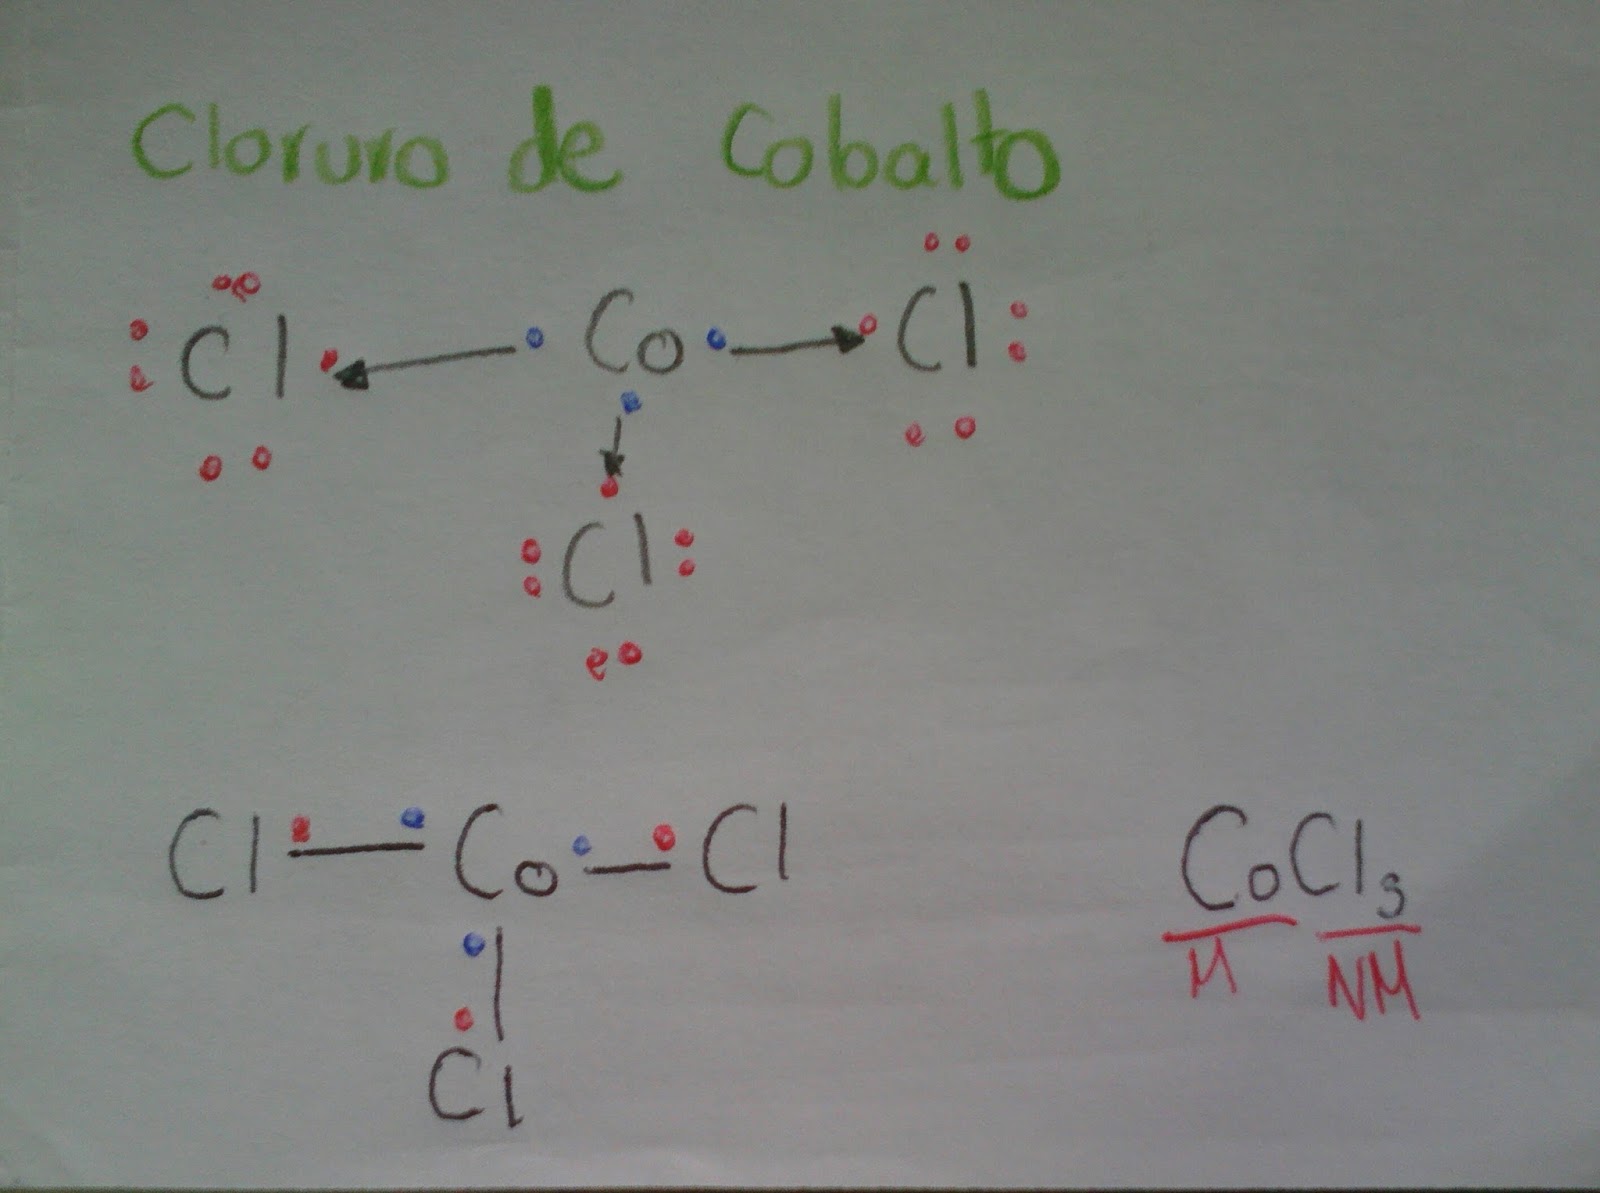 Cloruro de Cobalto
Cl Co Cl
Cl
Cl Co Cl
Cl
CoCl3
M NM